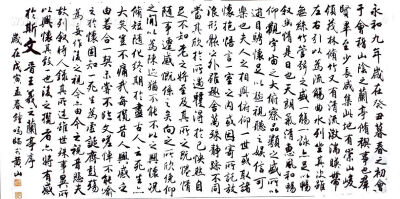 永和九年歲在癸丑暮春之初會
于會稽山陰之蘭亭脩禊事也羣
賢畢至少長咸集此地有崇山峻
領茂林脩竹又有清流激湍映帶
左右引以為流觴曲水列坐其次雖
無絲竹管弦之盛一觴一詠亦足以暢
敘幽情是日也天朗氣清惠風和暢
仰觀宇宙之大俯察品類之盛所以
遊目騁懷足以極視聽之娛信可
樂也夫人之相與俯仰一世或取諸
懷抱悟言一室之內或因寄所託放
浪形骸之外雖趣舍萬殊靜躁不同
當其欣於所遇暫得於己快然自
足不知老之將至及其所之既惓情
隨事遷感慨係之矣向之所欣俛仰
之間以為陳迹猶不能不以之興懷況
脩短隨化終期於盡古人云死生亦
大矣豈不痛哉每攬昔人興感之
由若合一契未嘗不臨文嗟悼不能喻
之於懷固知一死生為虛誕齊彭殤
為妄作後之視今亦由今之視昔悲夫
故列敘時人錄其所述雖世殊事異所
以興懷其致一也後之攬者亦將有感
於斯文 晉王羲之蘭亭序
歲在戊寅孟春